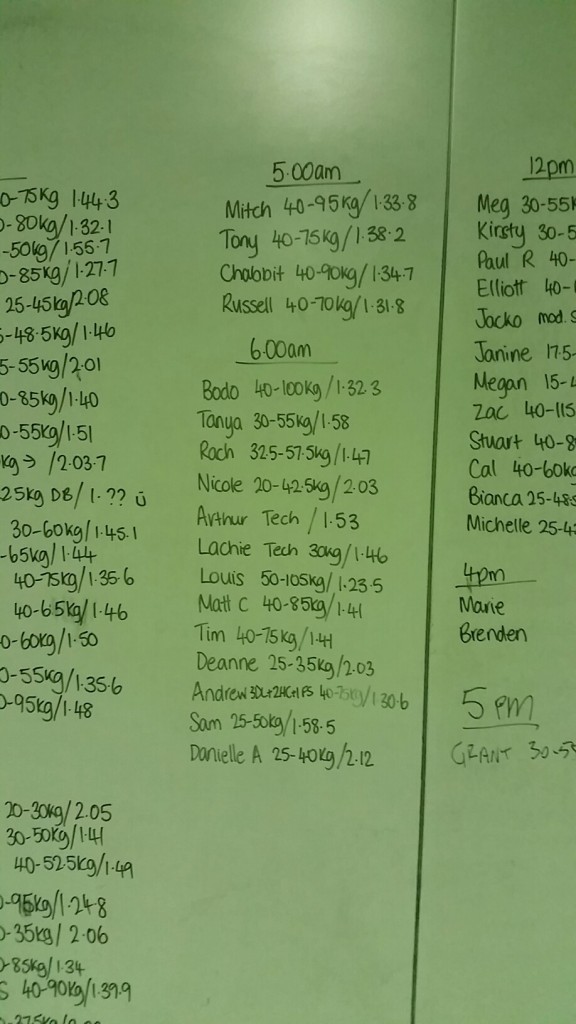 0-75kg 1.44.3
0-80kg/1.32.1
-50kg/1.55.7
0-85kg/1.27.7
25-45kg/2.08
-48.5kg/1.46
5-55kg/2.01
0-85kg/1.40
0-55kg/1.51
kg→ /2.03.7
25kg DB/ 1.??
30-60kg/1.45.1
-65kg/1.44
40-75kg/1.35.6
40-65kg/1.46
0-60kg/1.50
0-55kg/1.35.6
0-95kg/1.48
20-30kg/2.05
30-50kg/1.41
40-52.5kg/1.49
0-95kg/1.24.8
0-35kg/ 2.06
0-85kg/1.34
S 40-90kg/1.39.9
5.00am
Mitch 40-95kg/1.33.8
Tony 40-75kg/1.38.2
Chabbit 40-90kg/1.34.7
Russell 40-70kg/1.31.8
6.00am
Bodo 40-100kg/1.32.3
Tanya 30-55kg/1.58
Roch 32.5-57.5kg/1.47
Nicole 20-42.5kg/2.03
Arthur Tech /1.53
Lachie Tech 30kg/1.46
Louis 50-105kg/1.23.5
Matt C 40-85kg/1.41
Tim 40-75kg/1.41
Deanne 25-35kg/2.03
Andrew 3DL+2HC+1FS 40-75kg/1.30.6
Sam 25-50kg/1.58.5
Danielle A 25-40kg/2.12
12pm
Meg 30-55k
Kirsty 30-5
Paul R 40-
Elliott 40-
Jacko mod. S
Janine 17.5-
Megan 15-4
Zac 40-115
Stuart 40-8
Cal 40-60kg
Bianca 25-48.5
Michelle 25-4
4pm
Marie
Brenden
5 PM
GRANT 30-55